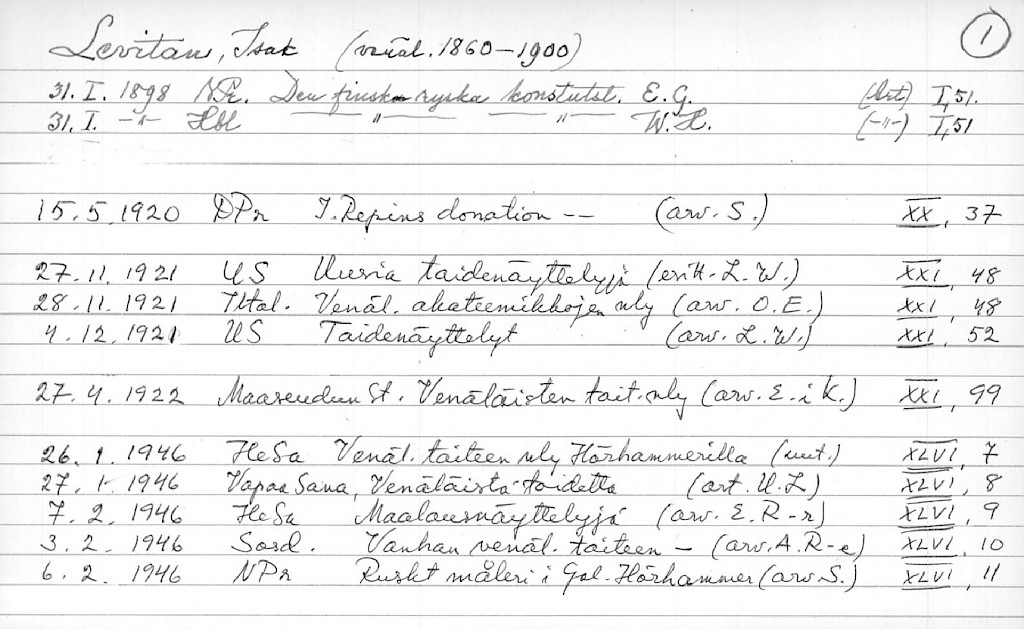 Levitan, Isak (venäl. 1860-1900) 1
31. I. 1898 NPr. Den finsk-ryska konstutst. E. G. (Art) I, 51.
31. I. -"- Hbl " " W. H. (-"-) I, 51
15. 5. 1920 DPr I. Repins donation -- (arv. S.) XX, 37
27. 11. 1921 US Uusia taidenäyttelyjä (erik. L. W.) XXI, 48
28. 11. 1921 Iltal. Venäl. akateemikkojen nly (arv. O. E.) XXI, 48
4. 12. 1921 US Taidenäyttelyt (arv. L. W.) XXI, 52
27. 4. 1922 Maaseudun St. Venäläisten tait. nly (arv. E. i K.) XXI, 99
26. 1. 1946 HeSa Venäl. taiteen nly Hörhammerilla (uut.) XLVI, 7
27. 1. 1946 Vapaa Sana, Venäläistä taidetta (art. U. L) XLVI, 8
7. 2. 1946 HeSa Maalausnäyttelyjä (arv. E. R-r) XLVI, 9
3. 2. 1946 Sosd. Vanhan venäl. taiteen - (arv. A. R-e) XLVI, 10
6. 2. 1946 NPr Ruskt måleri i Gal. Hörhammer (arv. S.) XLVI, 11